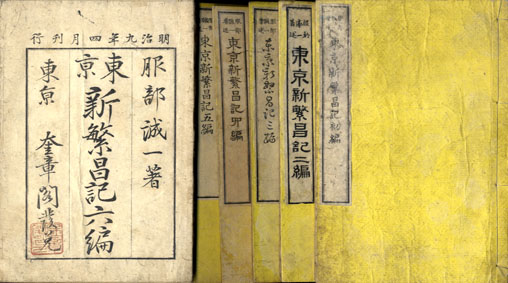 明治九年四月刊行
服部誠一著
東京新繁昌記六編
東亰 奎章閣發兌
東京新繁昌記初編
服部誠一著述
東京新繁昌記二編
東京新繁昌記三編
東京新繁昌記四編
東京新繁昌記五編